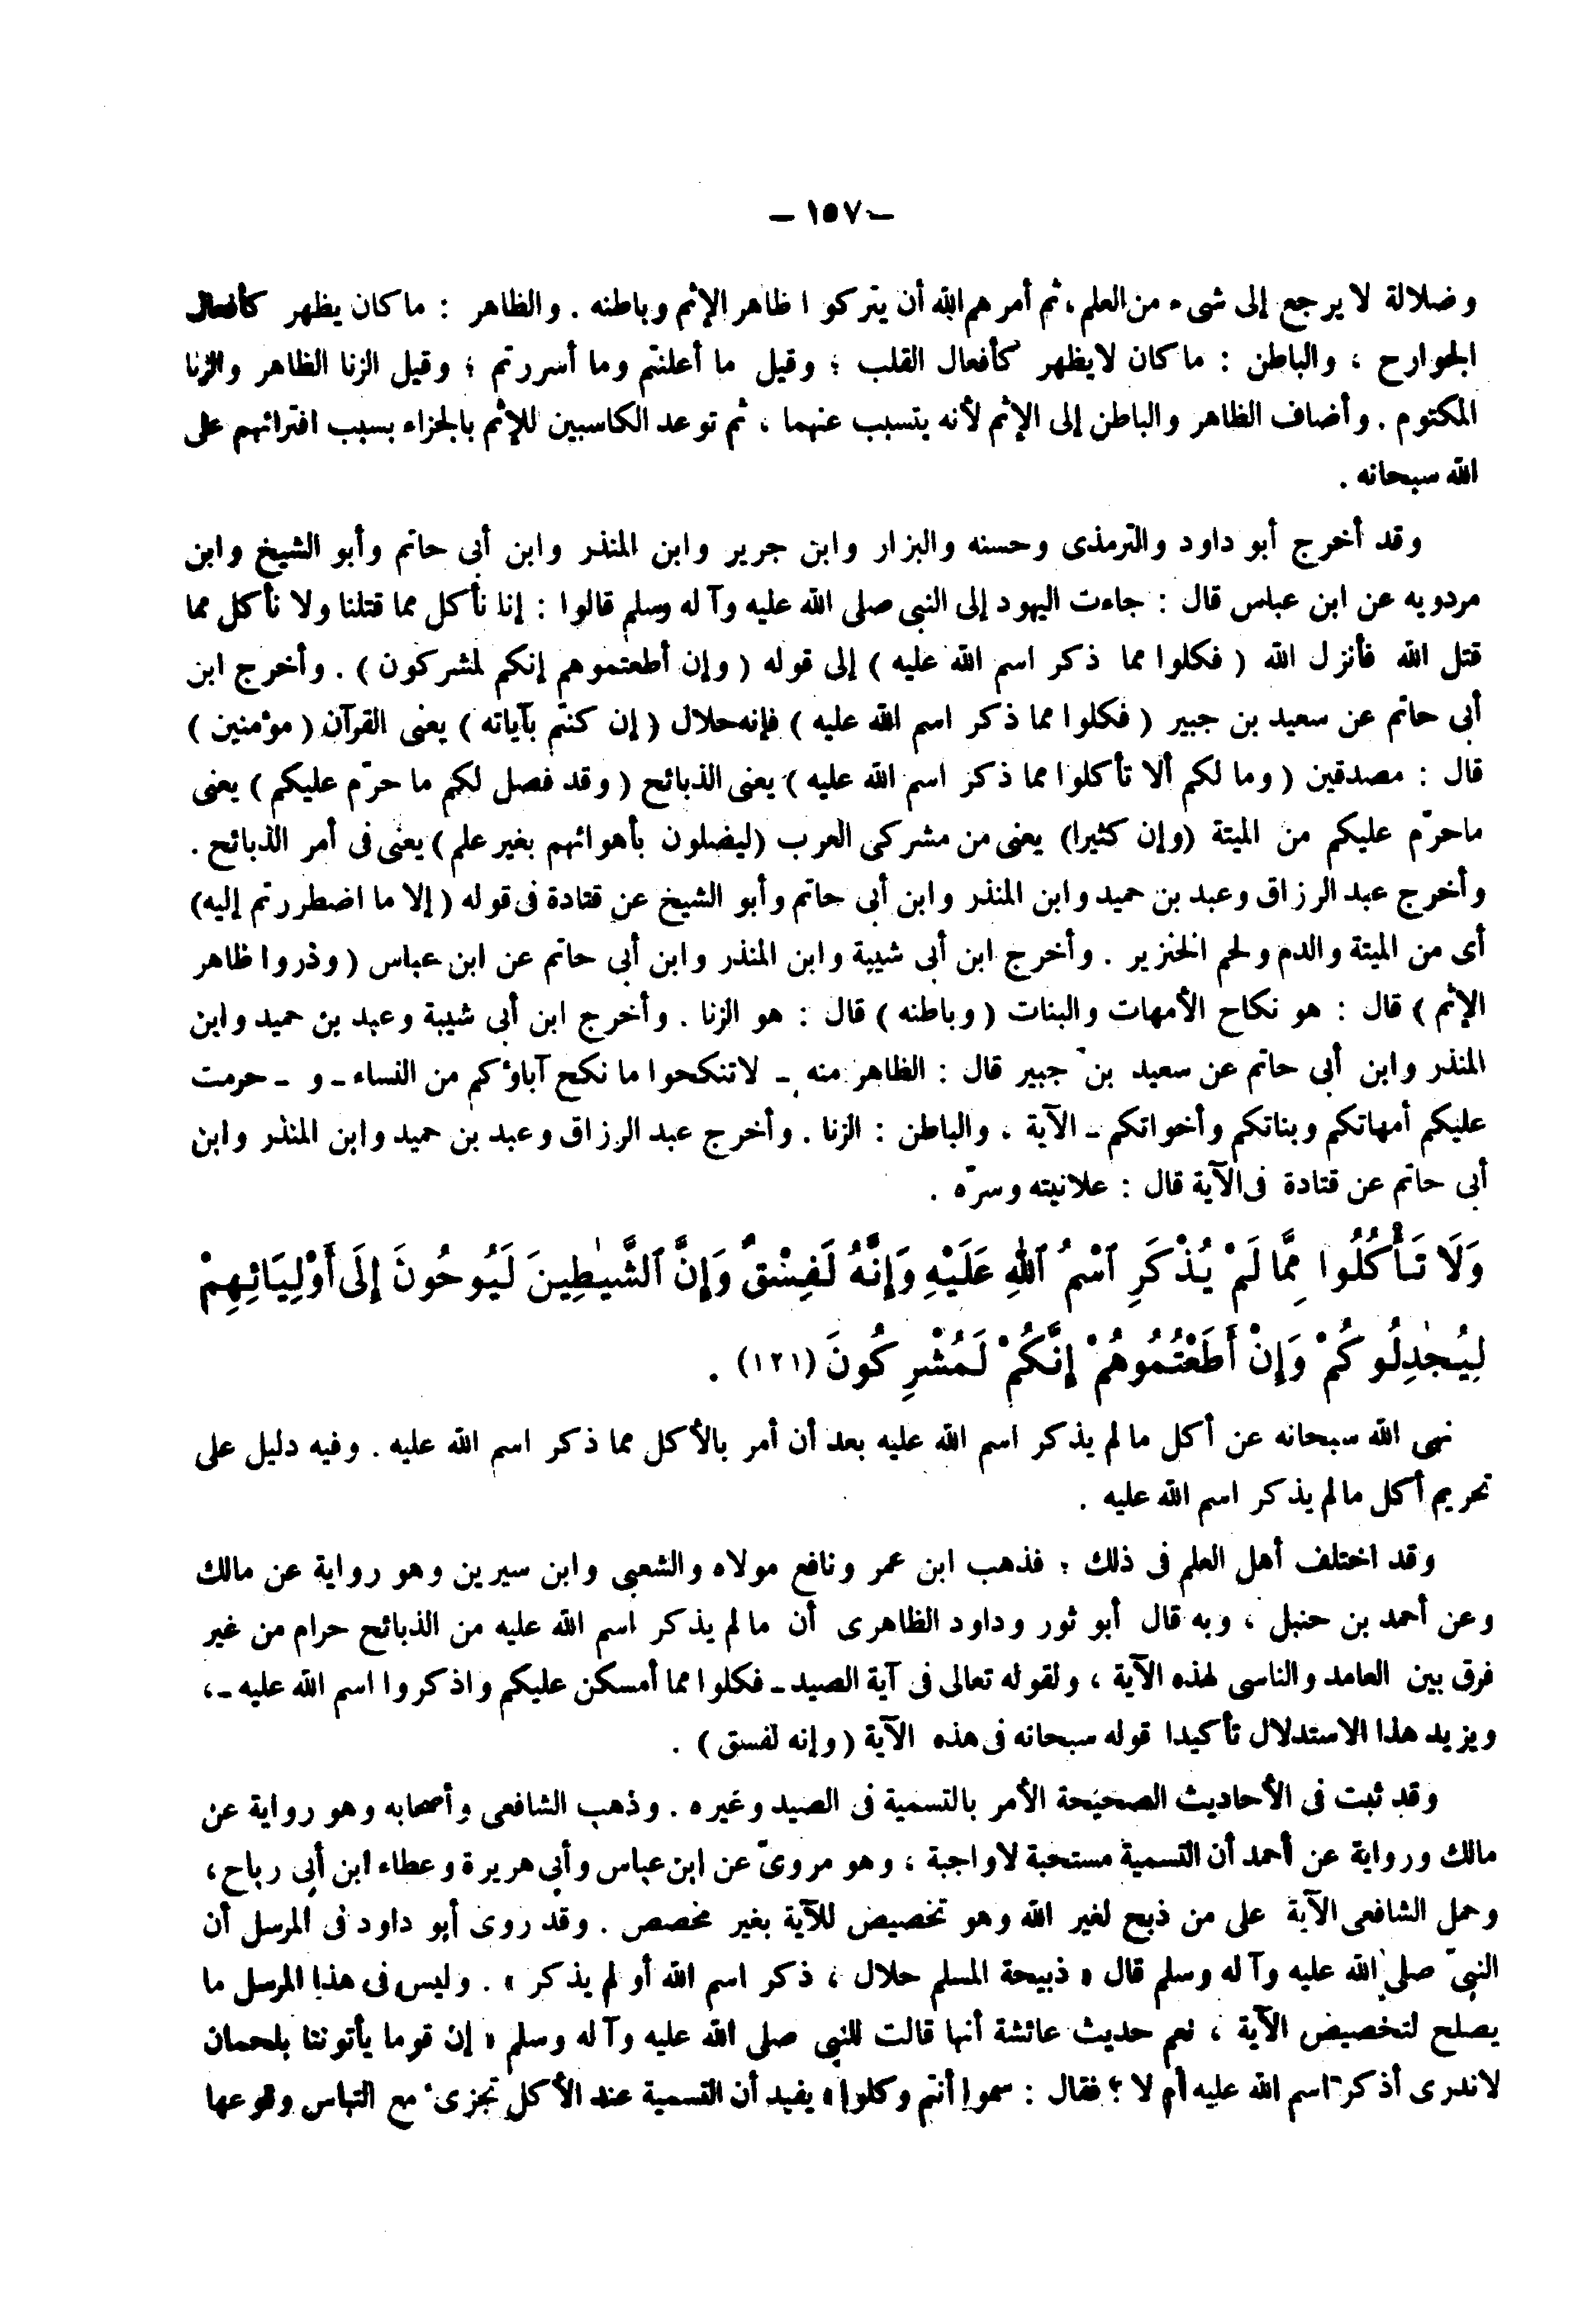 — ١٥٧ —
وضلالة لا يرجع إلى شىء من العلم ، ثم أمرهم الله أن يتركوا ظاهر الإثم وباطنه . والظاهر : ما كان يظهر كأفعال
الجوارح ، والباطن : ما كان لايظهر كأفعال القلب ؛ وقيل ما أعلنتم وما أسررتم ؛ وقيل الزنا الظاهر والزنا
المكتوم . وأضاف الظاهر والباطن إلى الإثم لأنه يتسبب عنهما ، ثم توعد الكاسبين للإثم بالجزاء بسبب افترائهم على
الله سبحانه .
وقد أخرج أبو داود والترمذى وحسنه والبزار وابن جرير وابن المنذر وابن أبى حاتم وأبو الشيخ وابن
مردويه عن ابن عباس قال : جاءت اليهود إلى النبى صلى الله عليه وآله وسلم قالوا : إنا نأكل مما قتلنا ولا نأكل مما
قتل الله فأنزل الله ( فكلوا مما ذكر اسم الله عليه ) إلى قوله ( وإن أطعتموهم إنكم لمشركون ) . وأخرج ابن
أبى حاتم عن سعيد بن جبير ( فكلوا مما ذكر اسم الله عليه ) فإنه حلال ( إن كنتم بآياته ) يعنى القرآن ( مؤمنين )
قال : مصدقين ( وما لكم ألا تأكلوا مما ذكر اسم الله عليه ) يعنى الذبائح ( وقد فصل لكم ما حرّم عليكم ) يعنى
ماحرّم عليكم من الميتة (وإن كثيرا) يعنى من مشركى العرب (ليضلون بأهوائهم بغير علم) يعنى فى أمر الذبائح .
وأخرج عبد الرزاق وعبد بن حميد وابن المنذر وابن أبى حاتم وأبو الشيخ عن قتادة فى قوله ( إلا ما اضطررتم إليه)
أى من الميتة والدم ولحم الخنزير . وأخرج ابن أبى شيبة وابن المنذر وابن أبى حاتم عن ابن عباس ( وذروا ظاهر
الإثم ) قال : هو نكاح الأمهات والبنات ( وباطنه ) قال : هو الزنا . وأخرج ابن أبى شيبة وعبد بن حميد وابن
المنذر وابن أبى حاتم عن سعيد بن جبير قال : الظاهر منه ـ لاتنكحوا ما نكح آباؤكم من النساء ـ و ـ حرمت
عليكم أمهاتكم وبناتكم وأخواتكم ـ الآية ، والباطن : الزنا . وأخرج عبد الرزاق وعبد بن حميد وابن المنذر وابن
أبى حاتم عن قتادة فى الآية قال : علانيته وسرّه .
وَلَا تَأْكُلُوا مِمَّا لَمْ يُذْكَرِ ٱسْمُ ٱللهِ عَلَيْهِ وَإِنَّهُ لَفِسْقٌ وَإِنَّ ٱلشَّيَٰطِينَ لَيُوحُونَ إِلَى أَوْلِيَائِهِمْ
لِيُجَٰدِلُوكُمْ وَإِنْ أَطَعْتُمُوهُمْ إِنَّكُمْ لَمُشْرِكُونَ (١٢١) .
نهى الله سبحانه عن أكل ما لم يذكر اسم الله عليه بعد أن أمر بالأكل مما ذكر اسم الله عليه . وفيه دليل على
تحريم أكل مالم يذكر اسم الله عليه .
وقد اختلف أهل العلم فى ذلك ؛ فذهب ابن عمر ونافع مولاه والشعبى وابن سيرين وهو رواية عن مالك
وعن أحمد بن حنبل ، وبه قال أبو ثور وداود الظاهرى أن ما لم يذكر اسم الله عليه من الذبائح حرام من غير
فرق بين العامد والناسى لهذه الآية ، ولقوله تعالى فى آية الصيد ـ فكلوا مما أمسكن عليكم واذكروا اسم الله عليه ـ ،
ويزيد هذا الاستدلال تأكيدا قوله سبحانه فى هذه الآية ( وإنه لفسق ) .
وقد ثبت فى الأحاديث الصحيحة الأمر بالتسمية فى الصيد وغيره . وذهب الشافعى وأصحابه وهو رواية عن
مالك ورواية عن أحمد أن التسمية مستحبة لاواجبة ، وهو مروىّ عن ابن عباس وأبى هريرة وعطاء ابن أبى رباح ،
وحمل الشافعى الآية على من ذبح لغير الله وهو تخصيص للآية بغير مخصص . وقد روى أبو داود فى المرسل أن
النبىّ صلى الله عليه وآله وسلم قال « ذبيحة المسلم حلال ، ذكر اسم الله أو لم يذكر » . وليس فى هذا المرسل ما
يصلح لتخصيص الآية ، نعم حديث عائشة أنها قالت للنبى صلى الله عليه وآله وسلم « إن قوما يأتوننا بلحمان
لاندرى أذكر اسم الله عليه أم لا ؟ فقال : سموا أنتم وكلوا» يفيد أن التسمية عند الأكل تجزىء مع التباس وقوعها